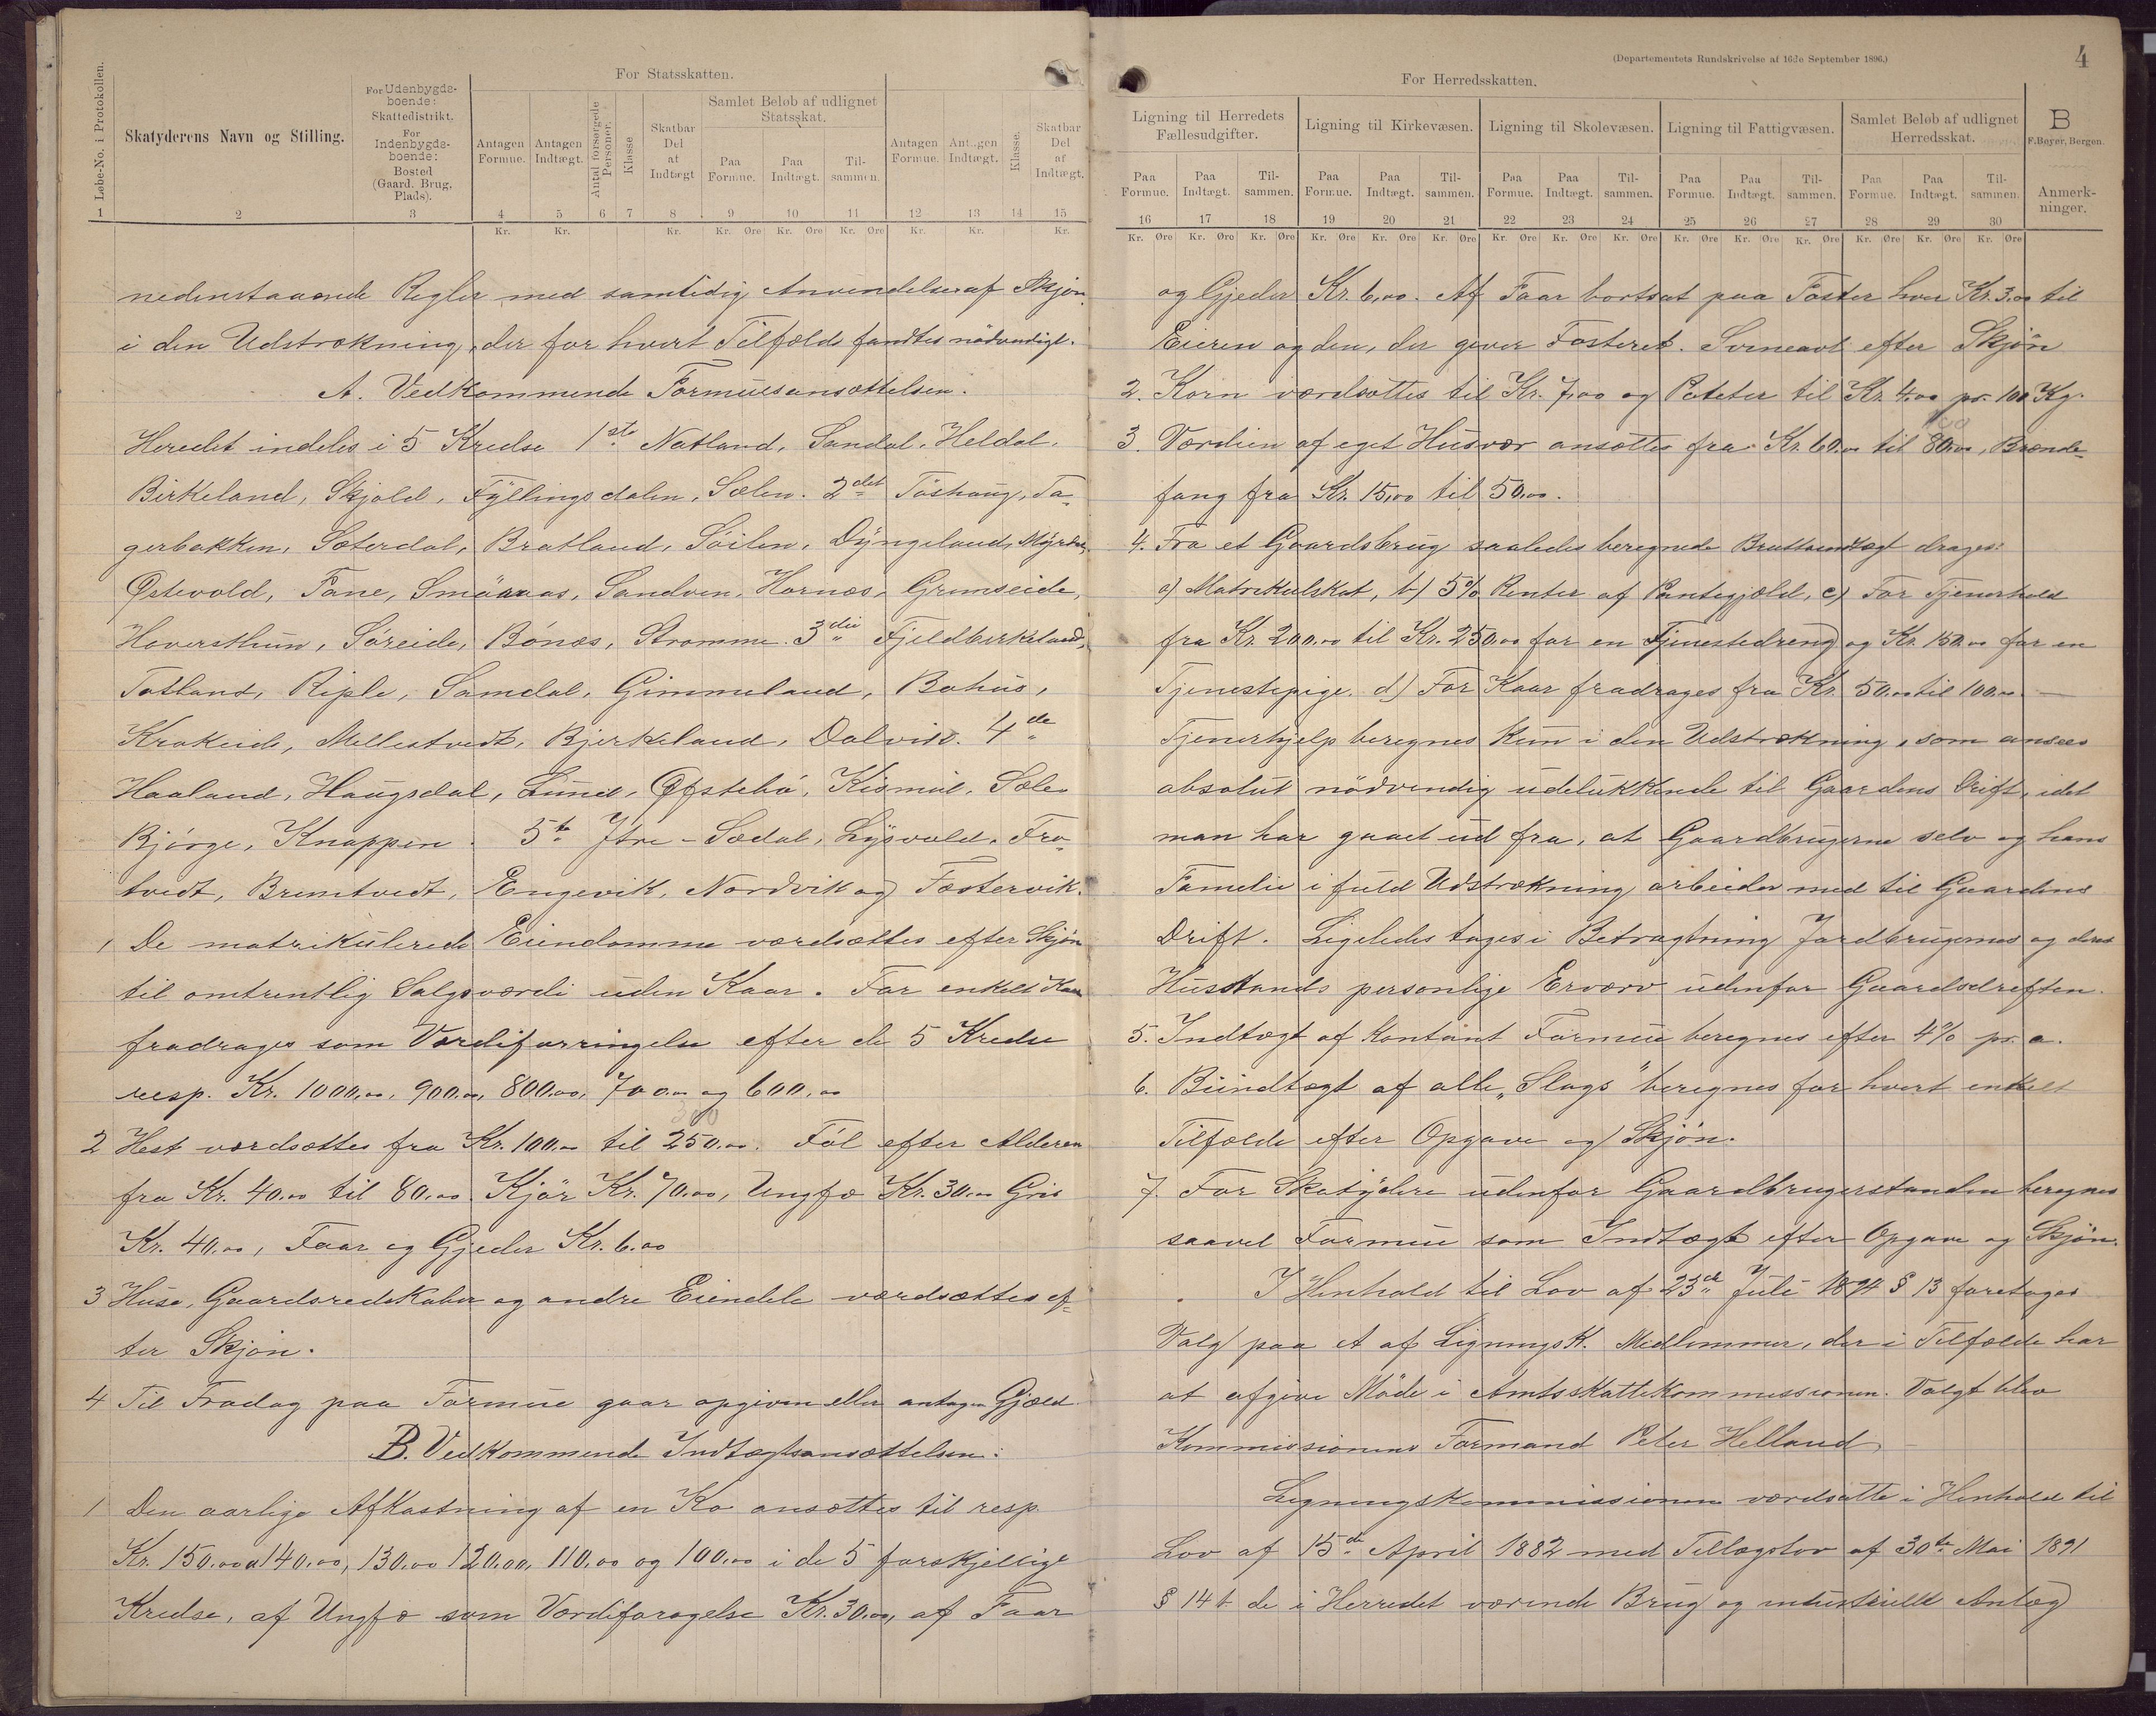 For Statsskatten.
Løbe-No. i Protokollen.
Skatyderens Navn og Stilling.
For Udenbygds-
boende:
Skattedistrikt.
For
Indenbygds-
boende:
Bosted
(Gaard. Brug,
Plads).
Antagen Formue.
Antagen Indtægt.
Antal forsørgede Personer.
Klasse
Skatbar Del af Indtægt
Samlet Beløb af udlignet Statsskat.
Paa Formue.
Paa Indtægt.
Til-sammen.
Antagen Formue.
Antagen Indtægt.
Klasse.
Skatbar Del af Indtægt.
1 2 3 4 5 6 7 8 9 10 11 12 13 14 15
Kr. Kr. Kr. Kr. Øre Kr. Øre Kr. Øre Kr. Kr. Kr.
nedenstaaende Regler med samtidig Anvendelse af Skjøn
i den Udstrækning, der for hvert Tilfælde fandtes nödvendigt.
A. Vedkommende Formuesansættelsen.
Heredet indeles i 5 Kredse 1ste Natland, Sandal, Heldal,
Birkeland, Skjold, Fyllingsdalen, Sælen. 2det Töshaug, Ta-
gerbakken, Sæterdal, Bratland, Söilen, Dyngeland, Myrdal,
Østevold, Fane, Smöraas, Sandven, Hornæs, Grimseide,
Hoversthun, Söreide, Bönæs, Strømme. 3die Fjeldbirkeland,
Totland, Riple, Samdal, Gimmeland, Bahus,
Krakeide, Mellestvedt, Bjerkeland, Dalvik. 4de
Haaland, Haugsdal, Lund, Øfstebö, Kismul, Sæle
Bjørge, Knappen. 5te Ytre-Sædal, Lysvold, Fro-
tvedt, Bruntvedt, Engevik, Nordvik og Fæstervik.
1 De matrikulerede Eiendomme værdsættes efter Skjøn
til omtrentlig Salgsværdi uden Kaar. For enkelt Kaar
fradrages som Værdiforringelse efter de 5 Kredse
resp. Kr. 1000,00, 900,00, 800,00, 700,00 og 600,00
300
2 Hest værdsættes fra Kr. 100,00 til 250,00. Föl efter Alderen
fra Kr. 40,00 til 80,00 Kjör Kr. 70,00, Ungfæ Kr. 30,00 Gris
Kr. 40,00, Faar og Gjeder Kr. 6,00
3 Huse, Gaardsredskaber og andre Eiendele værdsættes ef-
ter Skjøn.
4 Til Fradrag paa Formue gaar opgiven eller antagen Gjæld
B. Vedkommende Indtægtsansættelsen:
1 Den aarlige Afkastning af en Ko ansættes til resp.
Kr. 150,00 a 140,00, 130,00 120,00, 110,00 og 100,00 i de 5 forskjellige
Kredse, af Ungfæ som Værdiforøgelse Kr. 30,00, af Faar
(Departementets Rundskrivelse af 16de September 1896.)
4
For Herredsskatten.
Ligning til Herredets Fællesudgifter.
Ligning til Kirkevæsen.
Ligning til Skolevæsen.
Ligning til Fattigvæsen.
Samlet Beløb af udlignet Herredsskat.
B
F. Beyer, Bergen.
Paa Formue. Paa Indtægt. Til-sammen. Paa Formue. Paa Indtægt. Til-sammen. Paa Formue. Paa Indtægt. Til-sammen. Paa Formue. Paa Indtægt. Til-sammen. Paa Formue. Paa Indtægt. Til-sammen.
Anmerk-
ninger.
16 17 18 19 20 21 22 23 24 25 26 27 28 29 30
Kr. Øre Kr. Øre Kr. Øre Kr. Øre Kr. Øre Kr. Øre Kr. Øre Kr. Øre Kr. Øre Kr. Øre Kr. Øre Kr. Øre Kr. Øre Kr. Øre Kr. Øre
og Gjeder Kr. 6,00. Af Faar bortsat paa Foster hver Kr. 3,00 til
Eieren og den, der giver Fosteret. Svineavl efter Skjön
2. Korn værdsættes til Kr. 7,00 og Poteter til Kr. 4,00 pr. 100 Kg.
100
3. Værdien af eget Husvær ansættes fra Kr. 60,00 til 80,00, Brænde-
fang fra Kr. 15,00 til 50,00.
4. Fra et Gaardsbrug saaledes beregnede Bruttoindtægt drages:
a) Matrikulskat, b) 5% Renter af Pantegjæld, c) For Tjenerhold
fra Kr. 200,00 til Kr. 250,00 for en Tjenestedreng og Kr. 150,00 for en
Tjenestepige. d) For Kaar fradrages fra Kr. 50,00 til 100,00 —
Tjenerhjelp beregnes kun i den Udstrækning, som ansees
absolut nödvendig udelukkende til Gaardens Drift, idet
man har gaaet ud fra, at Gaardbrugerne selv og hans
Familie i fuld Udstrækning arbeider med til Gaardens
Drift. Ligeledes tages i Betragtning Jordbrugernes og deres
Husstands personlige Erværv udenfor Gaardsdriften.
5. Indtægt af Kontant Formue beregnes efter 4% pr. a.
6. Biindtægt af alle „Slags" beregnes for hvert enkelt
Tilfælde efter Opgave og Skjön.
7. For Skatydere udenfor Gaardbrugerstanden beregnes
saavel Formue som Indtægt efter Opgave og Skjön.
I Henhold til Lov af 23de Juli 1894 § 13 foretages
Valg paa et af LigningsK. Medlemmer, der i Tilfælde har
at afgive Möde i Amtsskattekommissionen. Valgt blev
Kommissionens Formand Peter Helland.
Ligningskommissionen værdsatte i Henhold til
Lov af 15de April 1882 med Tillægslov af 30te Mai 1891
§ 14 b de i Herredet værende Brug og industrielle Anlæg